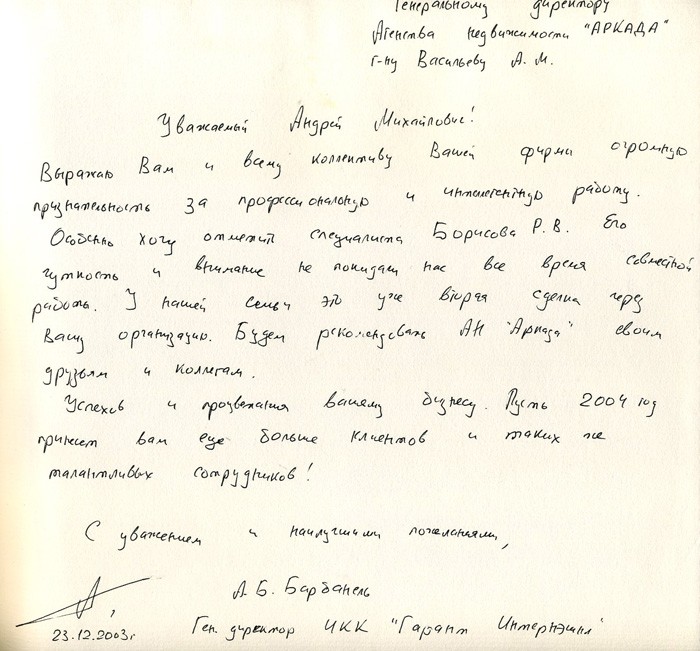 Генеральному директору
Агенства недвижимости "АРКАДА"
г-ну Васильеву А. М.
Уважаемый Андрей Михайлович!
Выражаю Вам и всему коллективу Вашей фирмы огромную
признательность за профессиональную и интелегентную работу.
Особенно хочу отметить специалиста Борисова Р. В. Его
чуткость и внимание не покидали нас все время совместной
работы. У нашей семьи это уже вторая сделка через
Вашу организацию. Будем рекомендовать АН "Аркада" своим
друзьям и коллегам.
Успехов и процветания вашему бизнесу. Пусть 2004 год
принесет вам еще больше клиентов и таких же
талантливых сотрудников!
С уважением и наилучшими пожеланиями,
А. Б. Барбанель
23.12.2003г Ген. директор ЧКК "Гарант Интернэшнл"